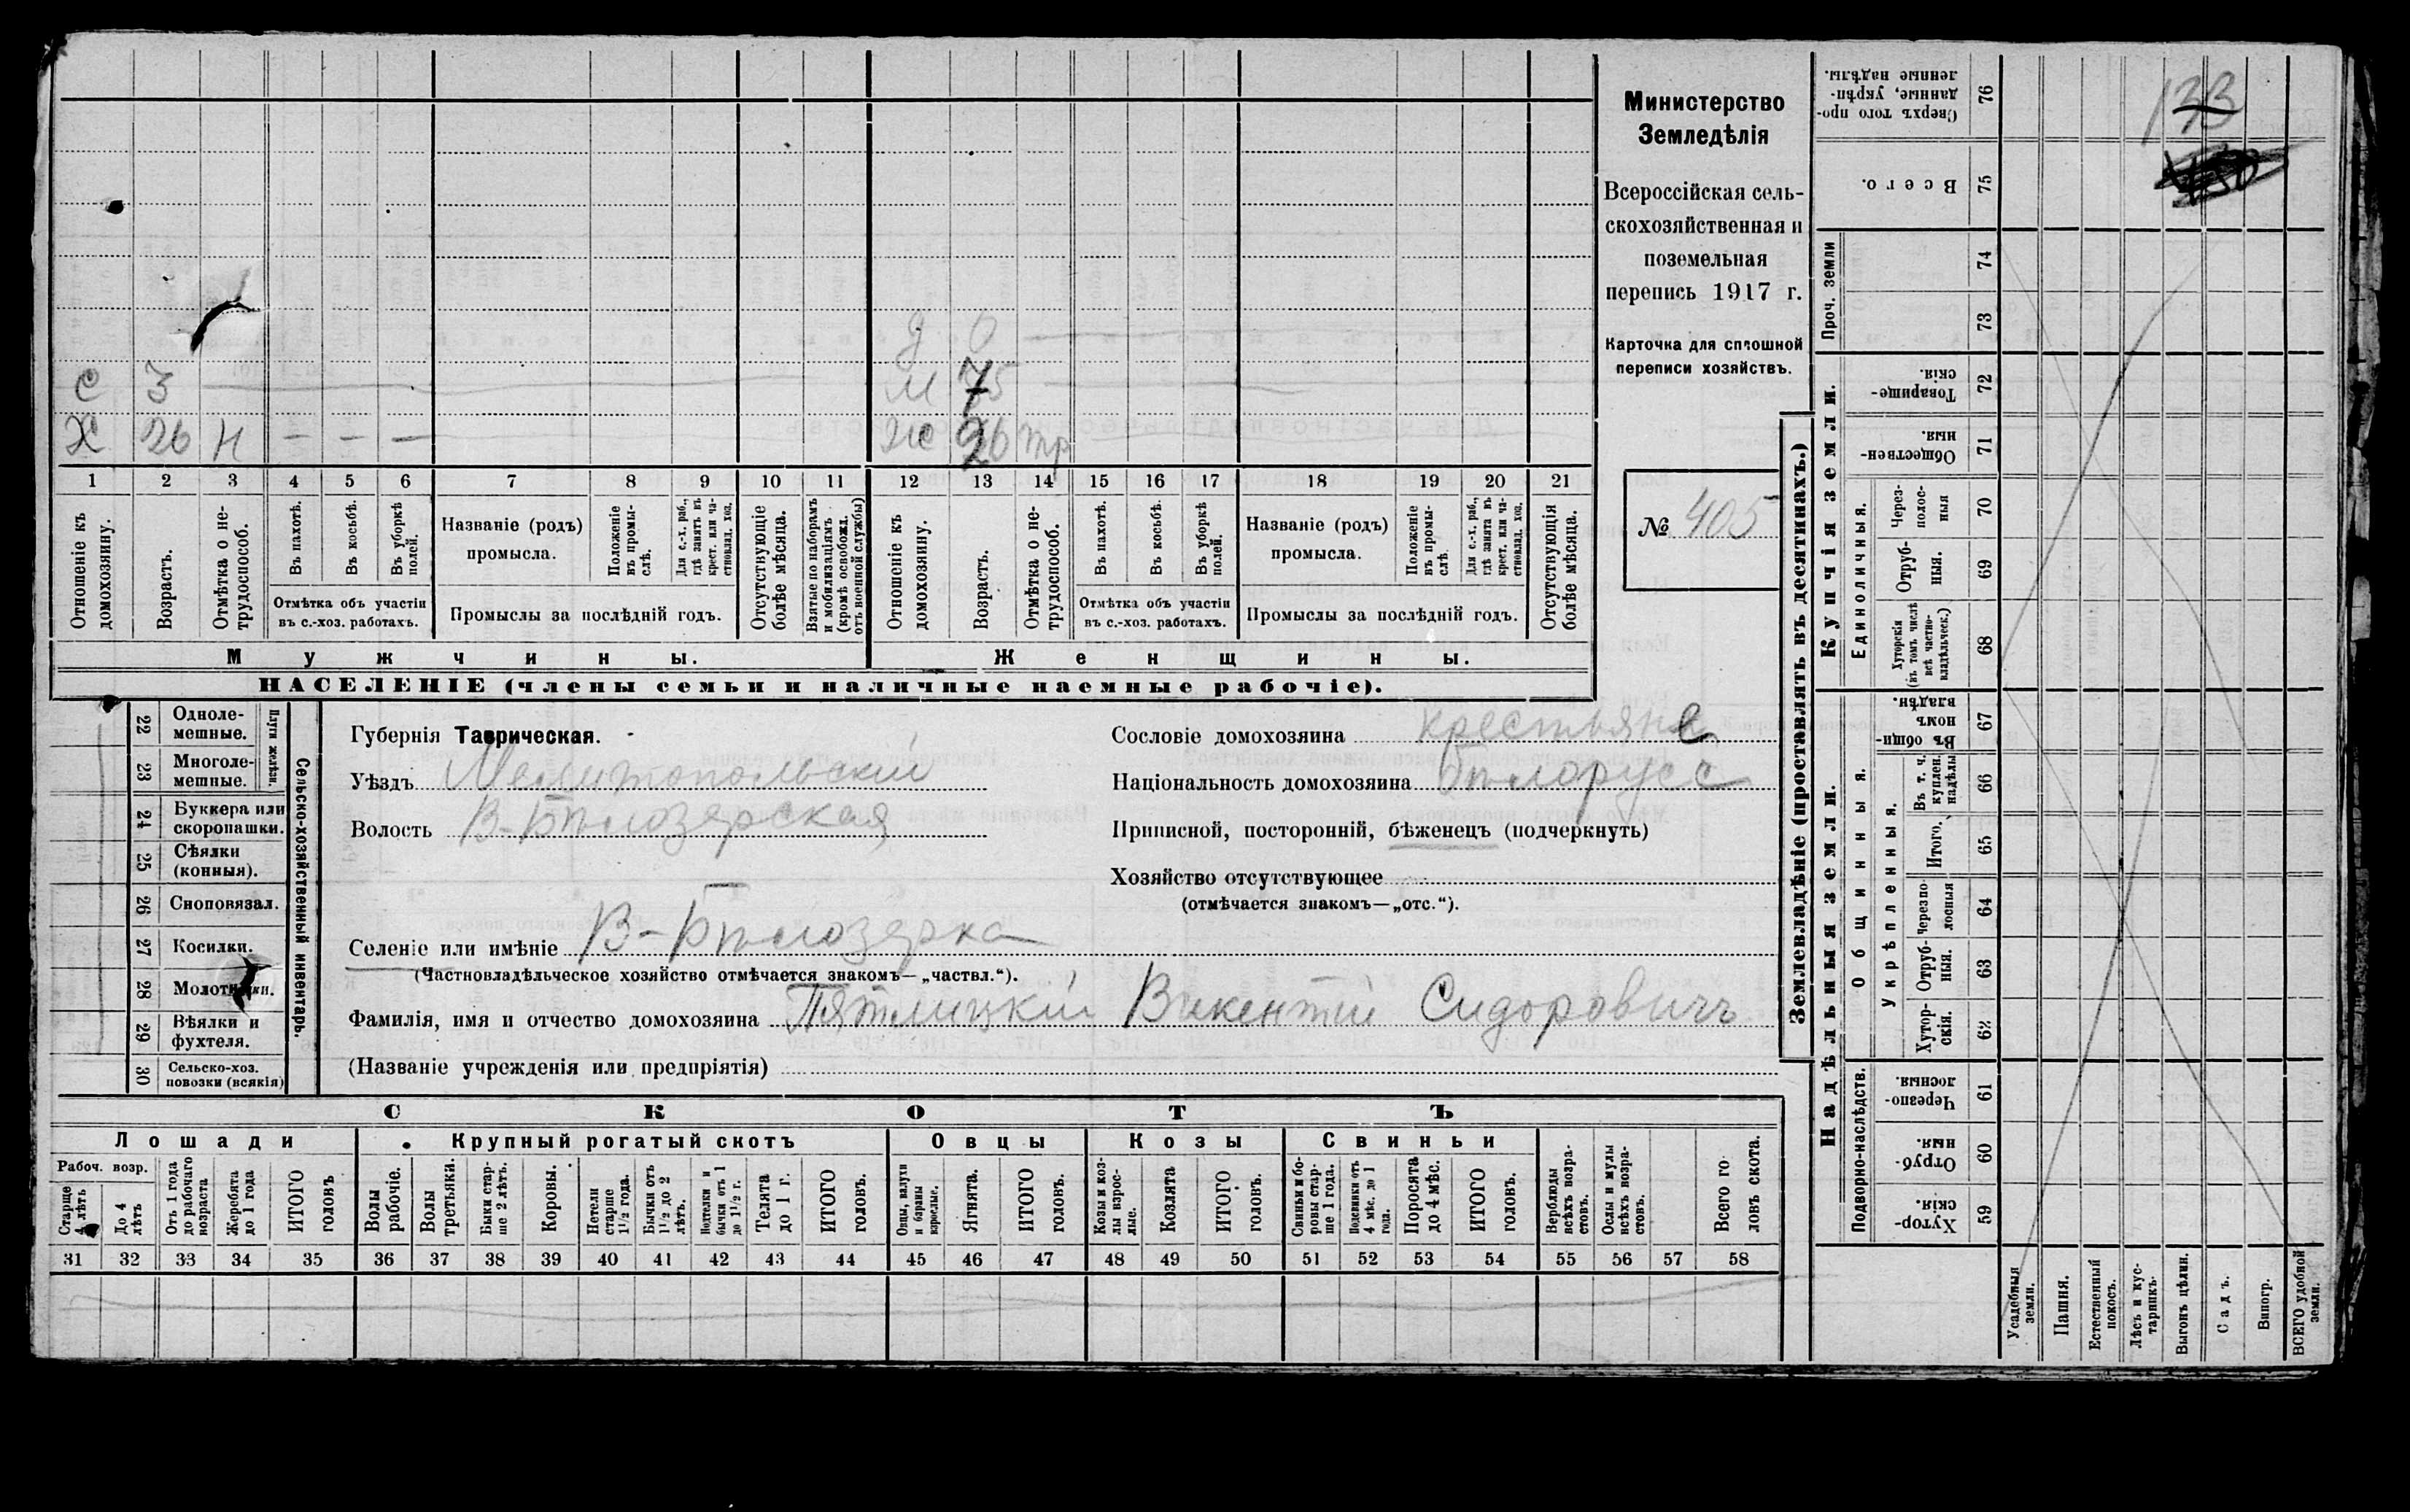 Министерство
Земледѣлія
Всероссійская сель-
скохозяйственная и
поземельная
перепись 1917 г.
Карточка для сплошной
переписи хозяйствъ.
№ 405
133
д 0
С 3
м 75
Х 26 н — — —
ж 26 тр
1 2 3 4 5 6 7 8 9 10 11 12 13 14 15 16 17 18 19 20 21
Отношеніе къ домохозяину.
Возрастъ.
Отмѣтка о не-трудоспособ.
Въ пахотѣ.
Въ косьбѣ.
Въ уборкѣ полей.
Отмѣтка объ участіи
въ с.-хоз. работахъ.
Названіе (родъ)
промысла.
Положеніе въ промы-слѣ.
Для с.-х. раб., гдѣ занятъ въ крест. или ча-стновлад. хоз.
Промыслы за послѣдній годъ.
Отсутствующіе болѣе мѣсяца.
Взятые по наборамъ и мобилизаціямъ (кромѣ освобожд. отъ военной службы)
Отношеніе къ домохозяину.
Возрастъ.
Отмѣтка о не-трудоспособ.
Въ пахотѣ.
Въ косьбѣ.
Въ уборкѣ полей.
Отмѣтка объ участіи
въ с.-хоз. работахъ.
Названіе (родъ)
промысла.
Положеніе въ промы-слѣ.
Для с.-х. раб., гдѣ занята въ крест. или ча-стновлад. хоз.
Промыслы за послѣдній годъ.
Отсутствующія болѣе мѣсяца.
Мужчины.
Женщины.
НАСЕЛЕНІЕ (члены семьи и наличные наемные рабочіе).
Сельско-хозяйственный инвентарь.
Плуги желѣзн.
22 Одноле-мешные.
23 Многоле-мешные.
24 Буккера или скоропашки.
25 Сѣялки (конныя).
26 Сноповязал.
27 Косилки.
28 Молотилки.
29 Вѣялки и фухтеля.
30 Сельско-хоз. повозки (всякія)
Губернія Таврическая.
Уѣздъ Мелитопольскій
Волость В-Бѣлозерская
Селеніе или имѣніе В-Бѣлозерка
(Частновладѣльческое хозяйство отмѣчается знакомъ—„частвл.“).
Фамилія, имя и отчество домохозяина Пятлицкій Викентій Сидоровичъ
(Названіе учрежденія или предпріятія)
Сословіе домохозяина крестьяне
Національность домохозяина бѣлорусс
Приписной, посторонній, бѣженецъ (подчеркнуть)
Хозяйство отсутствующее
(отмѣчается знакомъ—„отс.“).
СКОТЪ
Лошади
Крупный рогатый скотъ
Овцы
Козы
Свиньи
Рабоч. возр.
Старше 4 лѣтъ
До 4 лѣтъ
Отъ 1 года до рабочаго возраста
Жеребята до 1 года
ИТОГО головъ
Волы рабочіе.
Волы третьяки.
Быки стар-ше 2 лѣтъ.
Коровы.
Нетели старше 1½ года.
Бычки отъ 1½ до 2 лѣтъ.
Подтелки и бычки отъ 1 до 1½ г.
Телята до 1 г.
ИТОГО головъ.
Овцы, валухи и бараны взрослые.
Ягнята.
ИТОГО головъ.
Козы и коз-лы взрос-лые.
Козлята
ИТОГО головъ.
Свиньи и бо-ровы стар-ше 1 года.
Подсвинки отъ 4 мѣс. до 1 года.
Поросята до 4 мѣс.
ИТОГО головъ.
Верблюды всѣхъ возра-стовъ.
Ослы и мулы всѣхъ возра-стовъ.
Всего го ловъ скота.
31 32 33 34 35 36 37 38 39 40 41 42 43 44 45 46 47 48 49 50 51 52 53 54 55 56 57 58
Землевладѣніе (проставлять въ десятинахъ.)
Надѣльныя земли.
Купчія земли.
Проч. земли
Сверхъ того про-данные, укрѣп-ленные надѣлы. 76
Всего. 75
74
73
Товарище-скія. 72
Обществен-ныя. 71
Единоличныя.
Через-полос-ныя 70
Отруб-ныя. 69
Хуторскія (въ томъ числѣ всѣ частно-владѣльческ.) 68
Общинныя.
Въ общи-номъ владѣн. 67
Укрѣпленныя.
Въ т. ч. куплен. надѣлы 66
Итого. 65
Черезпо-лосныя 64
Отруб-ныя. 63
Хутор-скія. 62
Подворно-наслѣдств.
Черезпо-лосныя. 61
Отруб-ныя. 60
Хутор-скія 59
Усадебныя земли.
Пашня.
Естественный покосъ.
Лѣсъ и кус-тарникъ.
Выгонъ цѣлин.
Садъ.
Виногр.
ВСЕГО удобной земли.